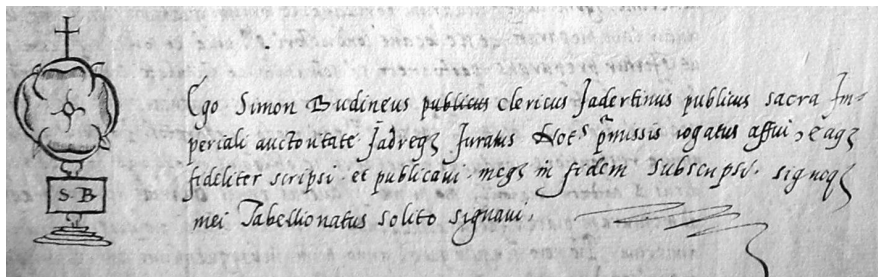 S. B
Ego Simon Budineus publicus clericus Jadertinus publicus sacra Im-
periali auctoritate Jadreqꝫ Juratus Not.s pͣmissis rogatus affui, eaqꝫ
fideliter scripsi et publicavi meqꝫ in fidem subscripsi. signoqꝫ
mei Tabellionatus solito signavi.